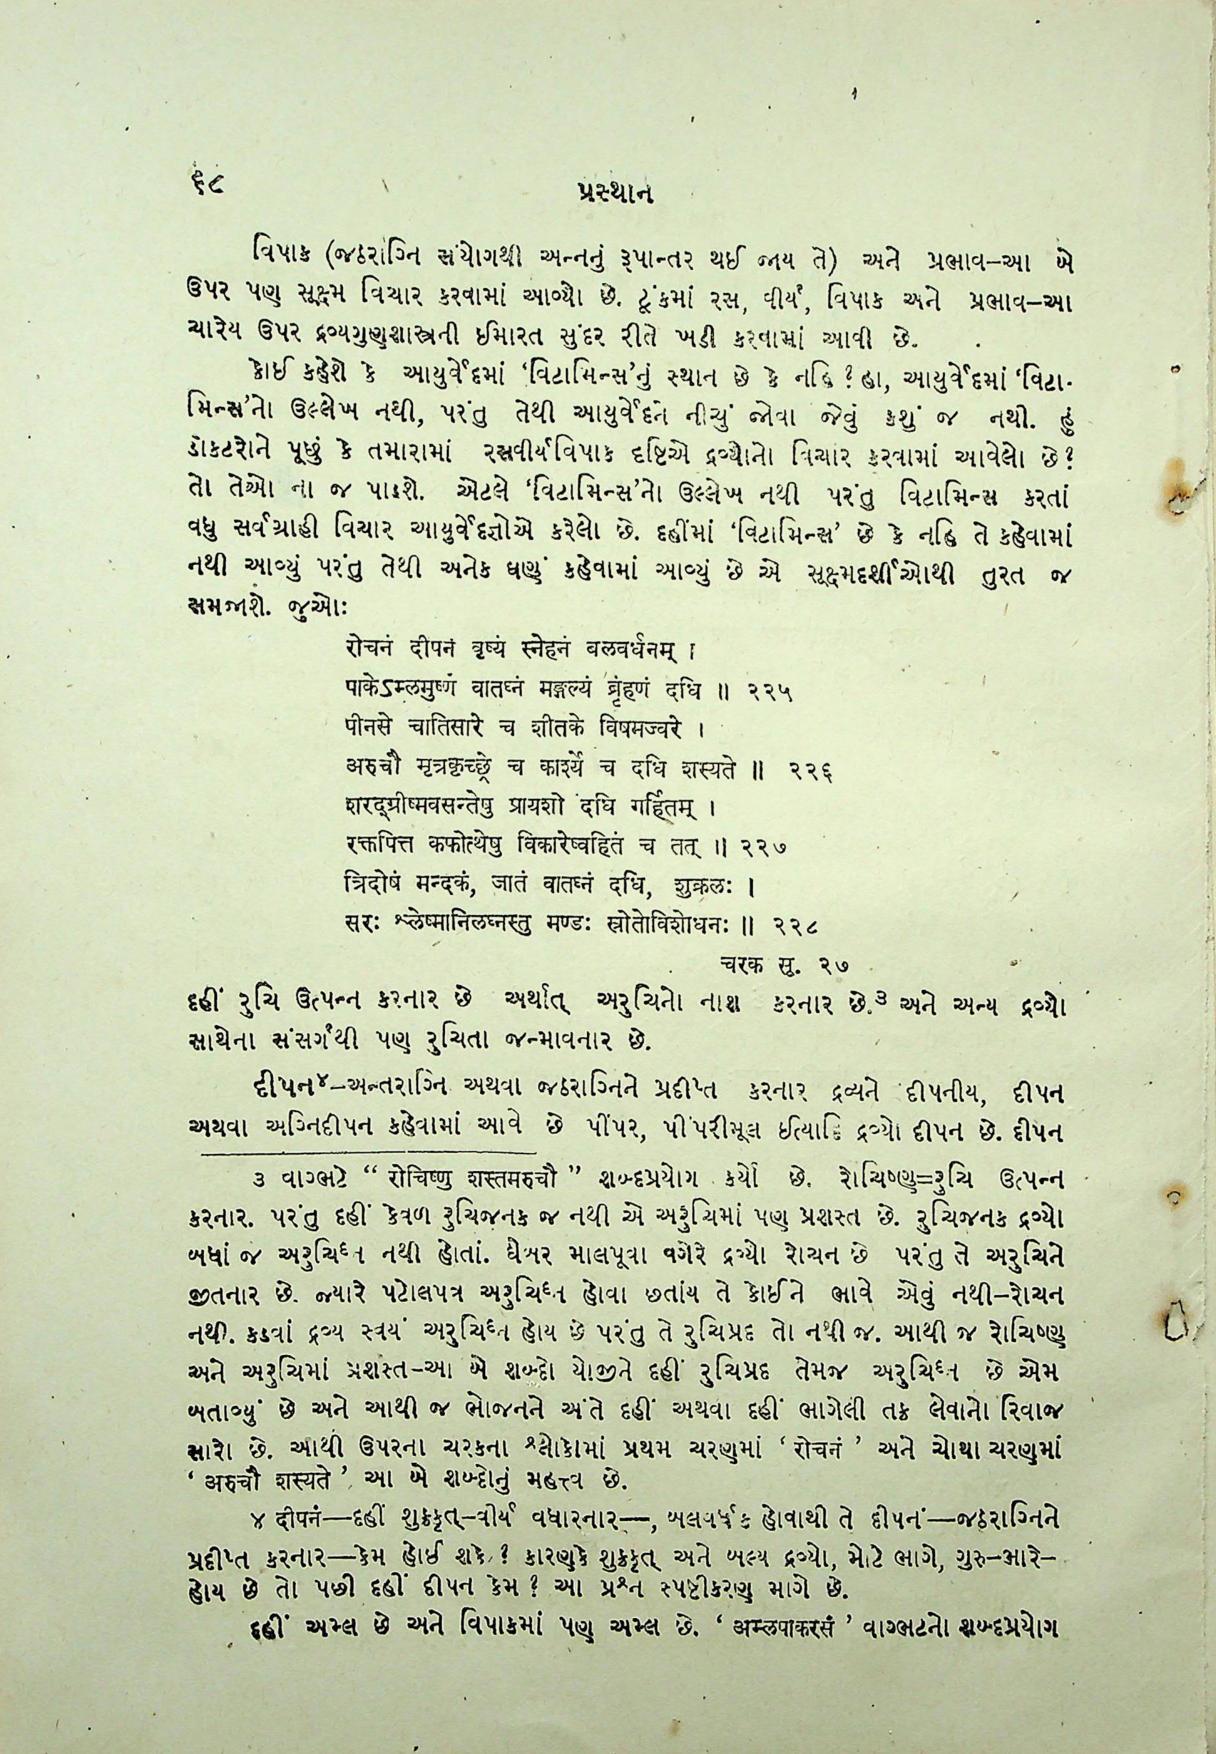 ૬૮
પ્રસ્થાન
વિપાક (જઠરાગ્નિ સંયોગથી અન્નનું રૂપાન્તર થઈ જાય તે) અને પ્રભાવ–આ બે
ઉપર પણ સૂક્ષ્મ વિચાર કરવામાં આવ્યો છે. ટૂંકમાં રસ, વીર્ય, વિપાક અને પ્રભાવ–આ
ચારેય ઉપર દ્રવ્યગુણશાસ્ત્રની ઈમારત સુંદર રીતે ખડી કરવામાં આવી છે.
કોઈ કહેશે કે આયુર્વેદમાં ‘વિટામિન્સ’નું સ્થાન છે કે નહિ? હા, આયુર્વેદમાં ‘વિટા-
મિન્સ’નો ઉલ્લેખ નથી, પરંતુ તેથી આયુર્વેદને નીચું જોવા જેવું કશું જ નથી. હું
ડૉકટરોને પૂછું કે તમારામાં રસવીર્યવિપાક દૃષ્ટિએ દ્રવ્યોનો વિચાર કરવામાં આવેલો છે?
તો તેઓ ના જ પાડશે. એટલે ‘વિટામિન્સ’નો ઉલ્લેખ નથી પરંતુ વિટામિન્સ કરતાં
વધુ સર્વગ્રાહી વિચાર આયુર્વેદજ્ઞોએ કરેલો છે. દહીંમાં ‘વિટામિન્સ’ છે કે નહિ તે કહેવામાં
નથી આવ્યું પરંતુ તેથી અનેક ઘણું કહેવામાં આવ્યું છે એ સૂક્ષ્મદર્શીઓથી તુરત જ
સમજાશે. જુઓઃ
रोचनं दीपनं वृष्यं स्नेहनं बलवर्धनम् ।
पाकेऽम्लमुष्णं वातघ्नं मङ्गल्यं बृंहणं दधि ॥ २२५
पीनसे चातिसारे च शीतके विषमज्वरे ।
अरुचौ मृत्रकृच्छ्रे च कार्श्ये च दधि शस्यते ॥ २२६
शरद्ग्रीष्मवसन्तेषु प्रायशो दधि गर्हितम् ।
रक्तपित्त कफोत्थेषु विकारेष्वहितं च तत् ॥ २२७
त्रिदोषं मन्दकं, जातं वातघ्नं दधि, शुक्रलः ।
सरः श्लेष्मानिलघ्नस्तु मण्डः स्रोतोविशोधनः ॥ २२८
चरक सू. २७
દહીં રુચિ ઉત્પન્ન કરનાર છે અર્થાત્ અરુચિનો નાશ કરનાર છે.૩ અને અન્ય દ્રવ્યો
સાથેના સંસર્ગથી પણ રુચિતા જન્માવનાર છે.
દીપન૪–અન્તરાગ્નિ અથવા જઠરાગ્નિને પ્રદીપ્ત કરનાર દ્રવ્યને દીપનીય, દીપન
અથવા અગ્નિદીપન કહેવામાં આવે છે પીંપર, પીંપરીમૂલ ઈત્યાદિ દ્રવ્યો દીપન છે. દીપન
૩ વાગ્ભટે “ रोचिष्णु शस्तमरुचौ ” શબ્દપ્રયોગ કર્યો છે. રોચિષ્ણુ=રુચિ ઉત્પન્ન
કરનાર. પરંતુ દહીં કેવળ રુચિજનક જ નથી એ અરુચિમાં પણ પ્રશસ્ત છે. રુચિજનક દ્રવ્યો
બધાં જ અરુચિઘ્ન નથી હોતાં. ઘેબર માલપૂવા વગેરે દ્રવ્યો રોચન છે પરંતુ તે અરુચિને
જીતનાર છે. જ્યારે પટોલપત્ર અરુચિઘ્ન હોવા છતાંય તે કોઈને ભાવે એવું નથી–રોચન
નથી. કડવાં દ્રવ્ય સ્વયં અરુચિઘ્ન હોય છે પરંતુ તે રુચિપ્રદ તો નથી જ. આથી જ રોચિષ્ણુ
અને અરુચિમાં પ્રશસ્ત–આ બે શબ્દો યોજીને દહીં રુચિપ્રદ તેમજ અરુચિઘ્ન છે એમ
બતાવ્યું છે અને આથી જ ભોજનને અંતે દહીં અથવા દહીં ભાગેલી તક્ર લેવાનો રિવાજ
સારો છે. આથી ઉપરના ચરકના શ્લોકોમાં પ્રથમ ચરણમાં ‘ रोचनं ’ અને ચોથા ચરણમાં
‘ अरुचौ शस्यते ’ આ બે શબ્દોનું મહત્ત્વ છે.
૪ दीपनं—દહીં શુક્રકૃત્–વીર્ય વધારનાર—, બલવર્ધક હોવાથી તે દીપનં—જઠરાગ્નિને
પ્રદીપ્ત કરનાર—કેમ હોઈ શકે? કારણકે શુક્રકૃત્ અને બલ્ય દ્રવ્યો, મોટે ભાગે, ગુરુ–ભારે–
હોય છે તો પછી દહીં દીપન કેમ? આ પ્રશ્ન સ્પષ્ટીકરણ માગે છે.
દહીં અમ્લ છે અને વિપાકમાં પણ અમ્લ છે. ‘ अम्लपाकरसं ’ વાગ્ભટનો શબ્દપ્રયોગ